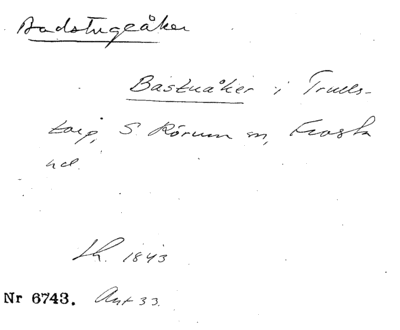 Badstugeåker
Bastuåker i Trulls-
torp, S. Rörum sn, Frosta
hd.
Lh. 1843
Nr 6743. Ant 33.